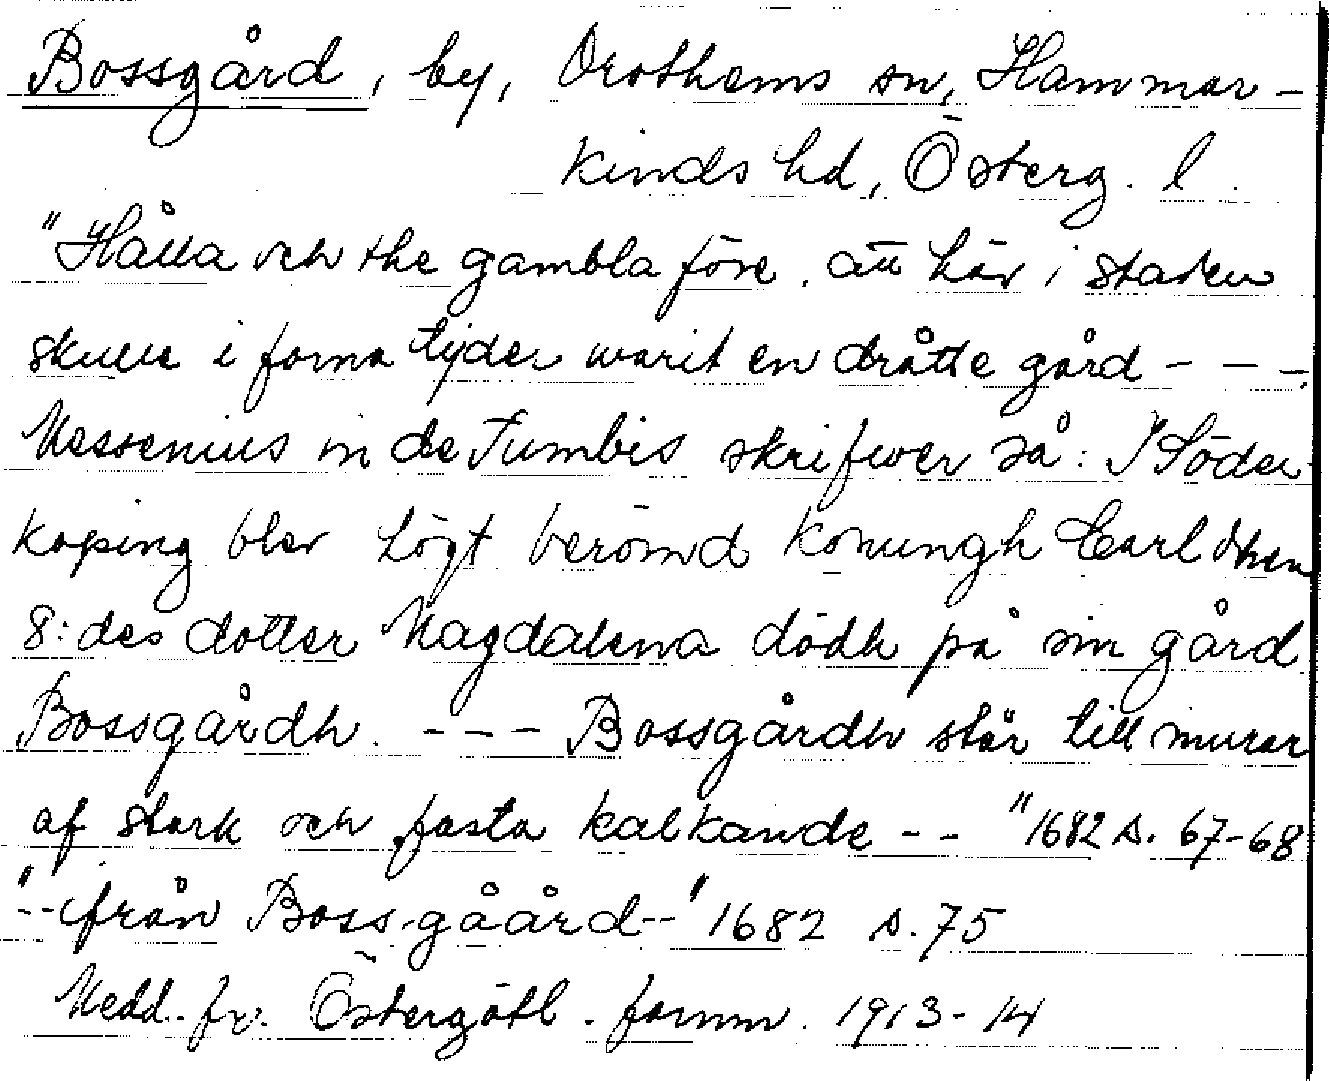 Bossgård, by, Drothems sn, Hammar-
kinds hd, Österg. l.
"Hålla och the gambla före, att här i staden
skulle i forna tijder warit en dråttegård - - -
Messenius in de Tumbis skrifwer så: I Söder-
köping blev högt berömd Konungh Carl then
8:des dotter Magdalena dödh på sin gård
Bossgårdh. - - - Bossgårdh står till murar
af stark och fasta kalkande - - " 1682 s. 67-68
"-- ifrån Boss-gåård--" 1682 s. 75
Medd. fr. Östergötl. fornm. 1913-14